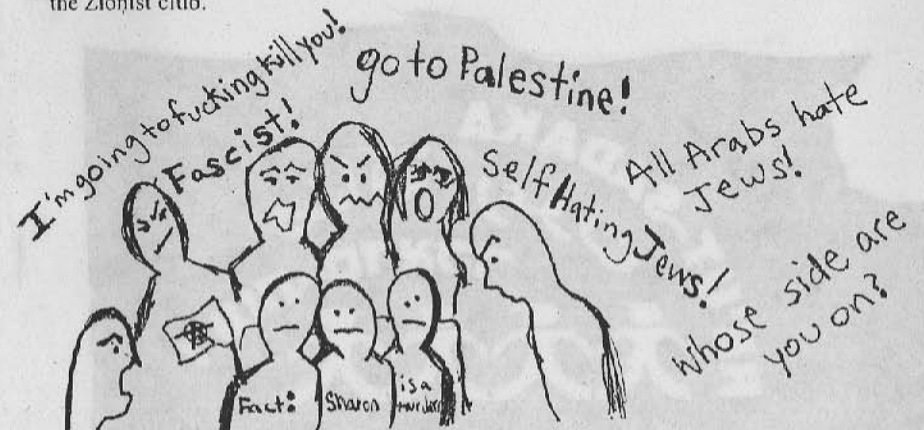 the Zionist club.
I'm going to fucking kill you!
Fascist!
go to Palestine!
Self Hating Jews!
All Arabs hate
Jews!
Whose side are
you on?
Fact:
Sharon
is a